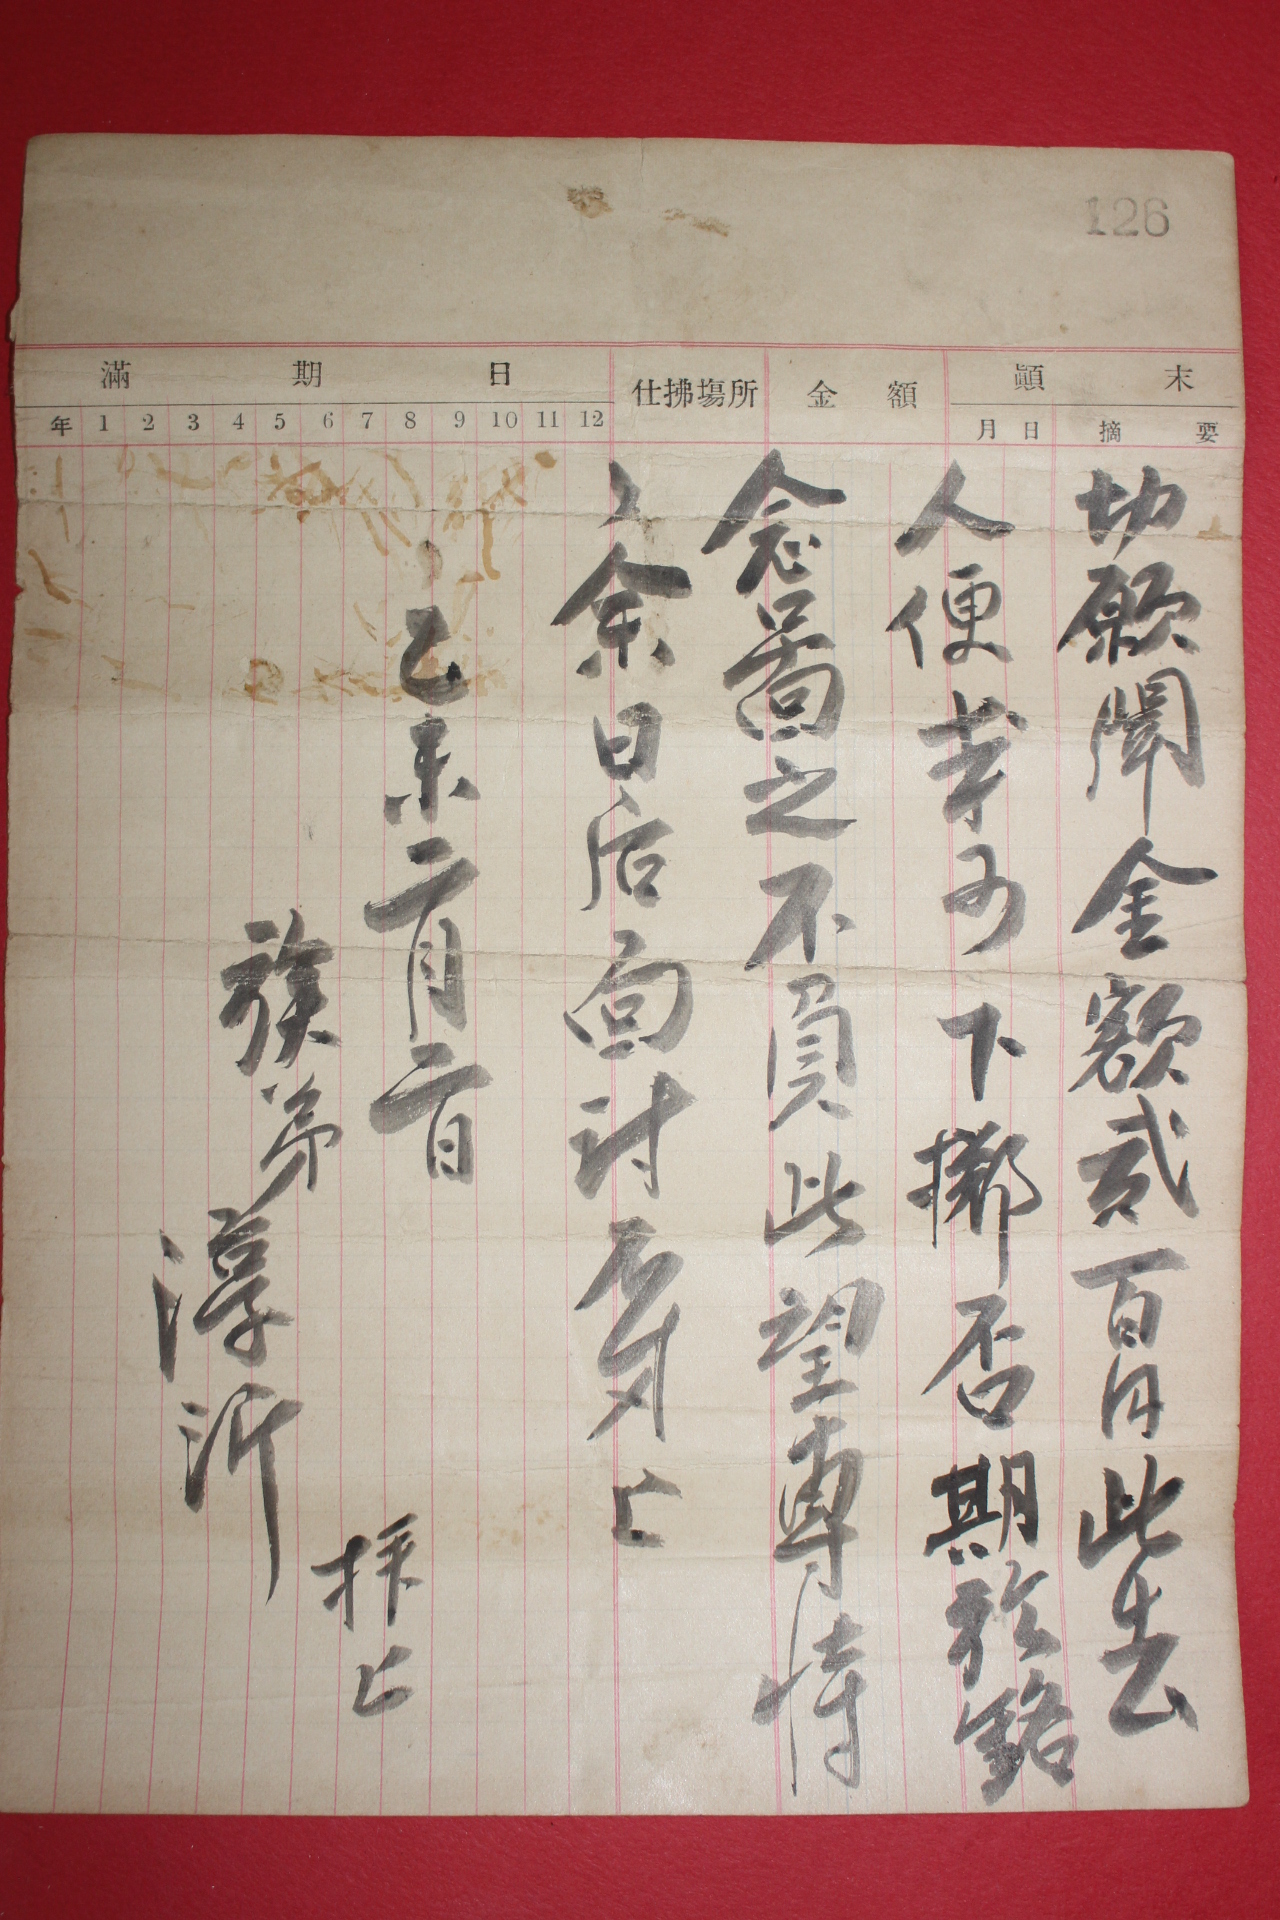 126
滿期日 仕拂塲所 金額 顚末
年 1 2 3 4 5 6 7 8 9 10 11 12 月日 摘要
切願聞金額貳百円此去
人便幸可下擲否期於銘
念啚之不負此望專恃
〻余日后面討戾上
乙未二月二日
族弟淳沂
拜上